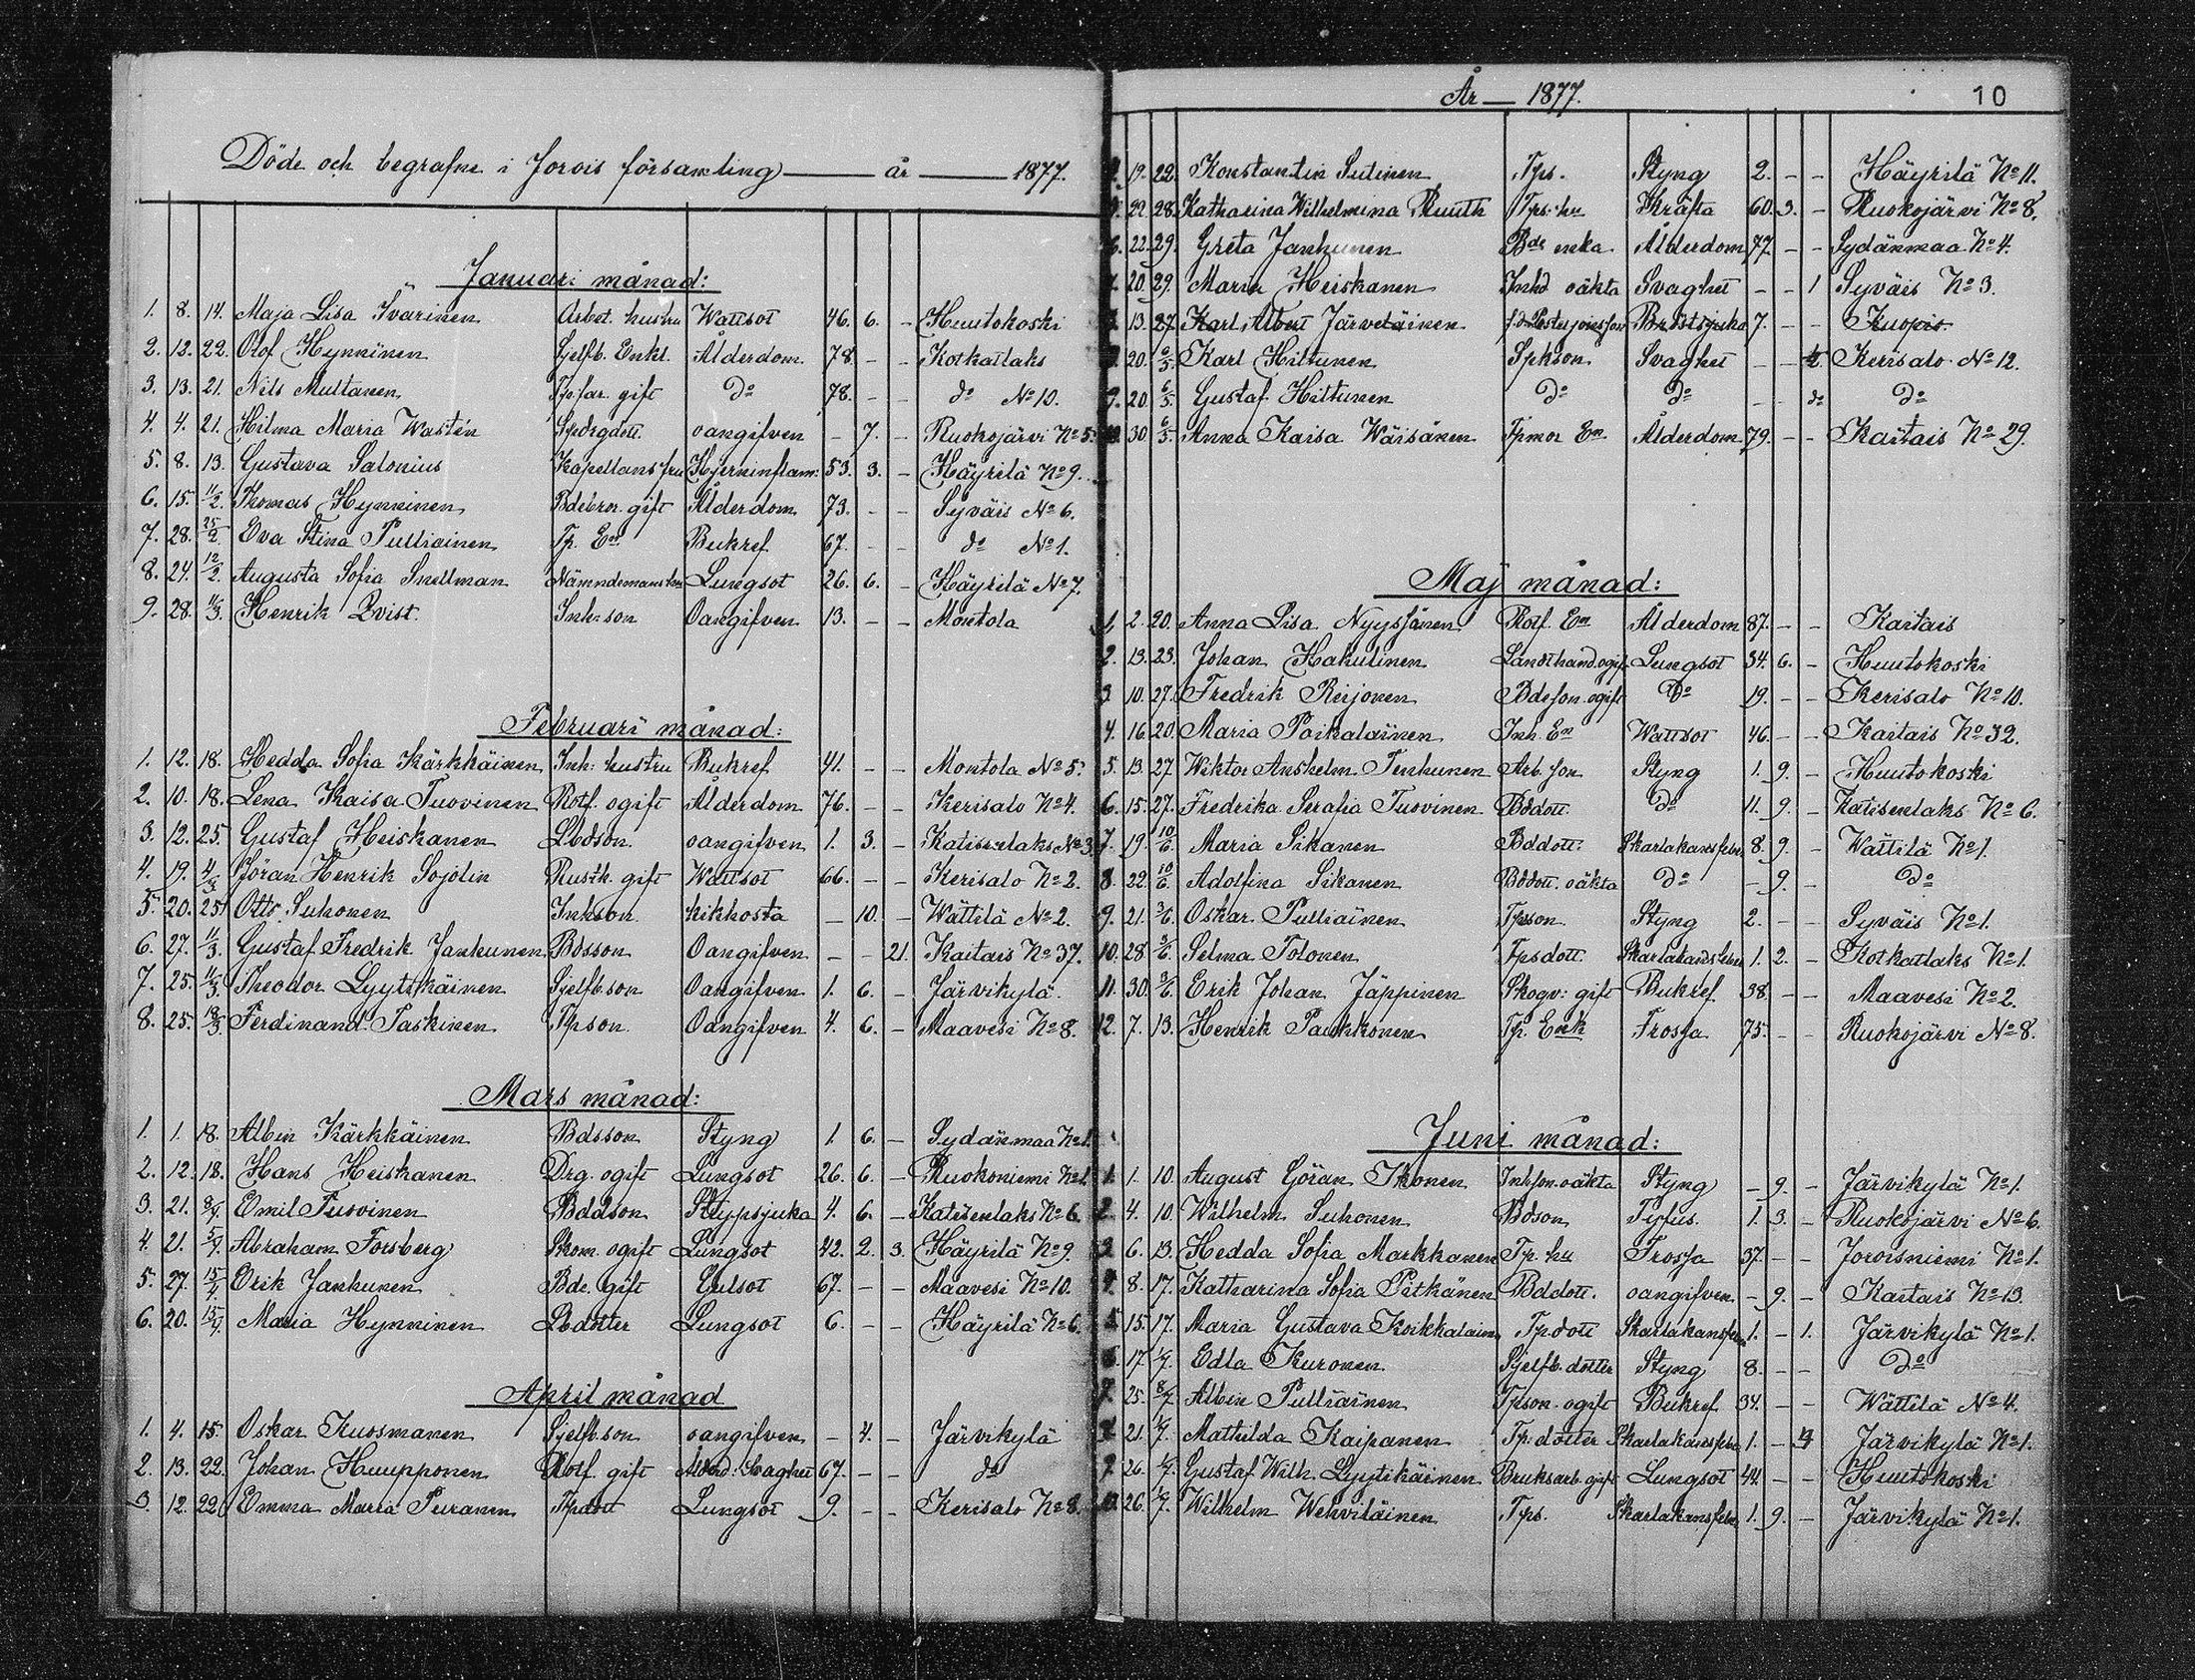 Döde och begrafne i Jorois församling — år — 1877.
Januari månad:
1. 8. 14. Maja Lisa Ivarinen Arbet. hustru Wattsot 46. 6. - Huutokoski
2. 12. 22. Olof Hynninen Sjelfb. Enkl. Ålderdom. 78. - - Kotkatlaks
3. 13. 21. Nils Multanen Tpsfar. gift do 78. - - do No 10.
4. 4. 21. Hilma Maria Wastén oangifven - 7. - Ruokojärvi No 5.
5. 8. 13. Gustava Salonius Kapellans fru Hjerninflam: 53. 3. - Häyrilä No 9.
6. 15. 11/2. Thomas Hynninen Bdebror. gift Ålderdom 73. - - Syväis No 6.
7. 28. 25/2. Eva Stina Pulliainen Tp. Em Bukref 67. - - do No 1.
8. 24. 12/2. Augusta Sofia Snellman Nämndemans hu Lungsot 26. 6. - Häyrilä No 7.
9. 28. 11/3. Henrik Qvist. Inh: son Oangifven 13. - - Montola
Februari månad:
1. 12. 18. Hedda Sofia Kärkkäinen Inh: hustru Bukref 41. - - Montola No 5.
2. 10. 18. Lena Kaisa Tuovinen Rotf. ogift Ålderdom 76. - - Kerisalo No 4.
3. 12. 25. Gustaf Heiskanen Lbdson. oangifven 1. 3. - Katisenlaks No 3.
4. 19. 4/3. Göran Henrik Sojolin Rusth. gift Wattsot 66. - - Kerisalo No 2.
5. 20. 25. Otto Suhonen Inhson kikhosta - 10. - Wättilä No 2.
6. 27. 11/3. Gustaf Fredrik Janhunen Bdsson Oangifven - - 21. Kaitais No 37.
7. 25. 11/3. Theodor Lyytikäinen Sjelfb.son Oangifven 1. 6. - Järvikylä.
8. 25. 18/3. Ferdinand Taskinen Tpson Oangifven 4. 6. - Maavesi No 8.
Mars månad:
1. 1. 18. Albin Kärkkäinen Bdsson Styng 1. 6. - Sydänmaa No 1.
2. 12. 18. Hans Heiskanen Drg. ogift Lungsot 26. 6. - Ruokoniemi No 1.
3. 21. 8/4. Emil Tuovinen Bddson Strypsjuka 4. 6. - Katisenlaks No 6.
4. 21. 5/4. Abraham Forsberg Skom. ogift Lungsot 42. 2. 3. Häyrilä No 9.
5. 27. 15/4. Erik Janhunen Bde. gift Gulsot 67. - - Maavesi No 10.
6. 20. 15/4. Maria Hynninen Lbdotter Lungsot 6. - - Häyrilä No 6.
April månad
1. 4. 15. Oskar Kuosmanen Sjelfb.son oangifven - 4. - Järvikylä
2. 13. 22. Johan Huupponen Rotf. gift Ålderd: Svaghet 67. - - do
3. 12. 22. Emma Maria Puranen Tpdott Lungsot 9. - - Kerisalo No 8.
År — 1877.
10
4. 19. 22. Konstantin Sutinen Tps. Styng 2. - - Häyrilä No 11.
5. 22. 28. Katharina Wilhelmina Ruuth Tps: hu Kräfta 60. 3. - Ruokojärvi No 8.
6. 22. 29. Greta Janhunen Bde enka Ålderdom 77. - - Sydänmaa No 4.
7. 20. 29. Maria Heiskanen Inhd oäkta Svaghet - - 1 Syväis No 3.
13. 27. Karl Albert Järveläinen Bröstsjuka 7. - - Kuopio
20. 6/5. Karl Hiltunen Spkson Svaghet - - Kerisalo No 12.
9. 20. 6/5. Gustaf Hiltunen do do - - do do
10. 30. 6/5. Anna Kaisa Wäisänen Tpmor Em Ålderdom 79. - - Kaitais No 29.
Maj månad:
1. 2. 20. Anna Lisa Nyyssönen Rotf. Em Ålderdom 87. - - Kaitais
2. 13. 23. Johan Hakulinen Landthand. ogift Lungsot 34. 6. - Huutokoski
3. 10. 27. Fredrik Reijonen Bdeson. ogift do 19. - - Kerisalo No 10.
4. 16. 20. Maria Poikalainen Inh. Em Wattsot 46. - - Kaitais No 32.
5. 13. 27. Wiktor Anshelm Tenhunen Arb. son Styng 1. 9. - Huutokoski
6. 15. 27. Fredrika Serafia Tuovinen Bddott. do 11. 9. - Katisenlaks No 6.
7. 19 10/6. Maria Sikanen Bddott: Skarlakansfeber 8. 9. - Wättilä No 1.
8. 22. 10/6. Adolfina Sikanen Bddott. oäkta do - 9. - do
9. 21. 3/6. Oskar Pulliainen Tpson. Styng 2. - - Syväis No 1.
10. 28. 3/6. Selma Tolonen Tpsdott. Skarlakansfeber 1. 2. - Kotkatlaks No 1.
11. 30. 3/6. Erik Johan Jäppinen Skogv: gift Bukref 38. - - Maavesi No 2.
12. 7. 13. Henrik Paukkonen Tp. Enk Frossa 75. - - Ruokojärvi No 8.
Juni månad:
1. 1. 10. August Göran Ikonen Inhson. oäkta Styng - 9. - Järvikylä No 1.
2. 4. 10. Wilhelm Suhonen Bdson Tyfus. 1. 3. - Ruokojärvi No 6.
3. 6. 13. Hedda Sofia Markkanen Tp. hu Frossa 37. - - Joroisniemi No 1.
4. 8. 17. Katharina Sofia Pitkänen Bddott. oangifven - 9. - Kaitais No 13.
5. 15. 17. Maria Gustava Koikkalainen Tpdott Skarlakansfeber 1. - 1. Järvikylä No 1.
6. 17. 1/7. Edla Kuronen Sjelfb. dotter Styng 8. - - do
7. 25. 8/7. Albin Pulliainen Tpson. ogift Bukref 34. - - Wättilä No 4.
8. 21. 1/7. Mathilda Kaipanen Tp: dotter Skarlakansfeber 1. - Järvikylä No 1.
9. 26. 1/7. Gustaf Wilh. Lyytikäinen Bruksarb. gift Lungsot 44. - - Huutokoski
10. 26. 1/7. Wilhelm Wehviläinen Tps. Skarlakansfeber 1. 9. - Järvikylä No 1.